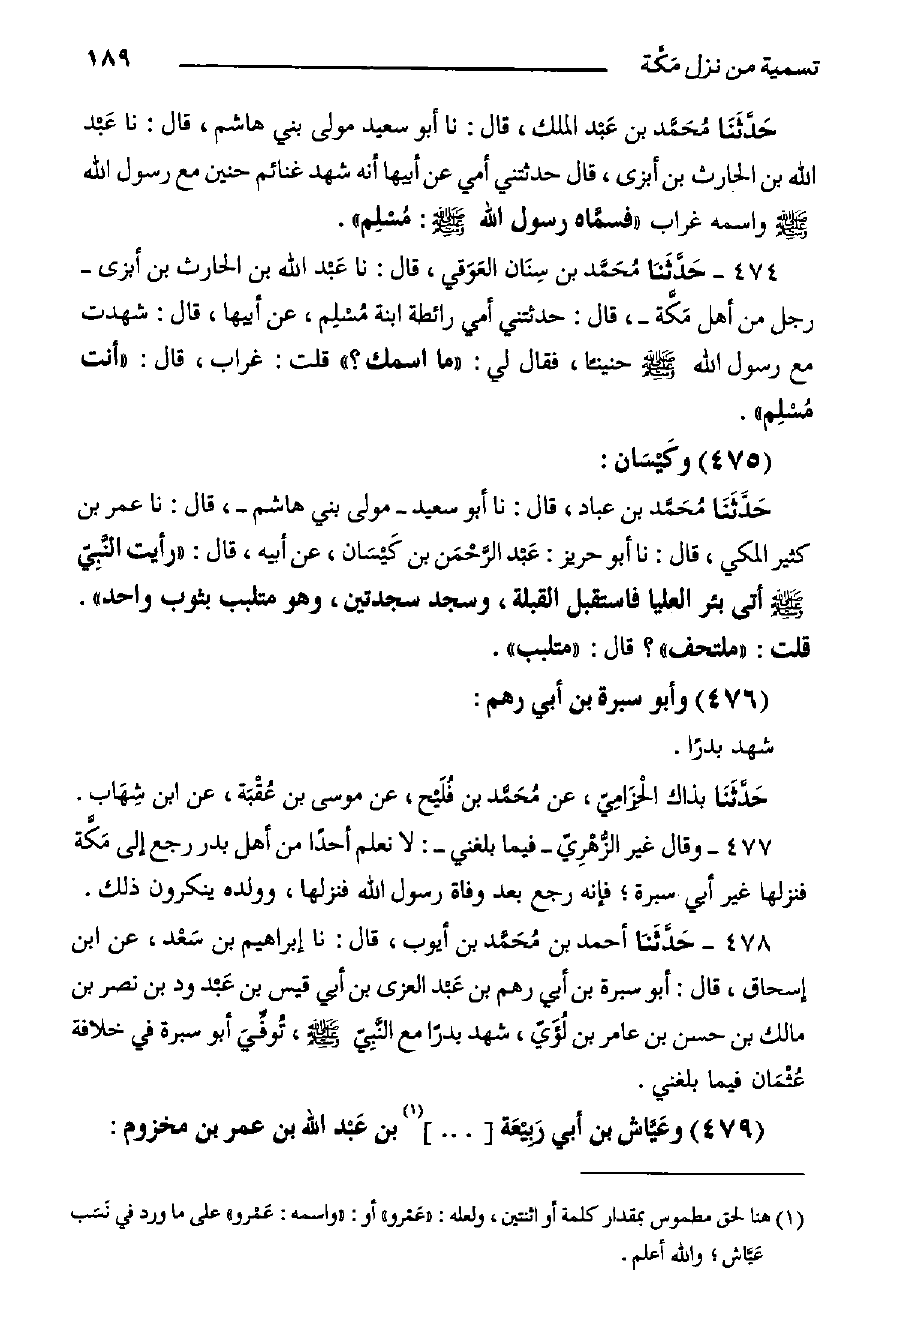 تسمية من نزل مَكَّة ١٨٩
حَدَّثَنَا مُحَمَّد بن عَبْد الملك ، قال : نا أبو سعيد مولى بني هاشم ، قال : نا عَبْد
الله بن الحارث بن أبزى ، قال حدثتني أمي عن أبيها أنه شهد غنائم حنين مع رسول الله
ﷺ واسمه غراب «فسمَّاه رسول الله ﷺ : مُسْلِم» .
٤٧٤ ـ حَدَّثَنَا مُحَمَّد بن سِنَان العَوَقي ، قال : نا عَبْد الله بن الحارث بن أبزى ـ
رجل من أهل مَكَّة ـ ، قال : حدثتني أمي رائطة ابنة مُسْلِم ، عن أبيها ، قال : شهدت
مع رسول الله ﷺ حنينًا ، فقال لي : «ما اسمك ؟» قلت : غراب ، قال : «أنت
مُسْلِم» .
(٤٧٥) وكَيْسَان :
حَدَّثَنَا مُحَمَّد بن عباد ، قال : نا أبو سعيد ـ مولى بني هاشم ـ ، قال : نا عمر بن
كثير المكي ، قال : نا أبو حريز : عَبْد الرَّحْمَن بن كَيْسَان ، عن أبيه ، قال : «رأيت النَّبِيّ
ﷺ أتى بئر العليا فاستقبل القبلة ، وسجد سجدتين ، وهو متلبب بثوب واحد» .
قلت : «ملتحف» ؟ قال : «متلبب» .
(٤٧٦) وأبو سبرة بن أبي رهم :
شهد بدرًا .
حَدَّثَنَا بذاك الْحِزَامِيّ ، عن مُحَمَّد بن فُلَيْح ، عن موسى بن عُقْبَة ، عن ابن شِهَاب .
٤٧٧ ـ وقال غير الزُّهْرِيّ ـ فيما بلغني ـ : لا نعلم أحدًا من أهل بدر رجع إلى مَكَّة
فنزلها غير أبي سبرة ؛ فإنه رجع بعد وفاة رسول الله فنزلها ، وولده ينكرون ذلك .
٤٧٨ ـ حَدَّثَنَا أحمد بن مُحَمَّد بن أيوب ، قال : نا إبراهيم بن سَعْد ، عن ابن
إسحاق ، قال : أبو سبرة بن أبي رهم بن عَبْد العزى بن أبي قيس بن عَبْد ود بن نصر بن
مالك بن حسن بن عامر بن لُؤَيّ ، شهد بدرًا مع النَّبِيّ ﷺ ، تُوفِّيَ أبو سبرة في خلافة
عُثْمَان فيما بلغني .
(٤٧٩) وعَيَّاش بن أبي رَبِيْعَة [ ... ](١) بن عَبْد الله بن عمر بن مخزوم :
(١) هنا لحق مطموس بمقدار كلمة أو اثنتين ، ولعله : «عَمْرو» أو : «واسمه : عَمْرو» على ما ورد في نَسَب
عَيَّاش ؛ والله أعلم .